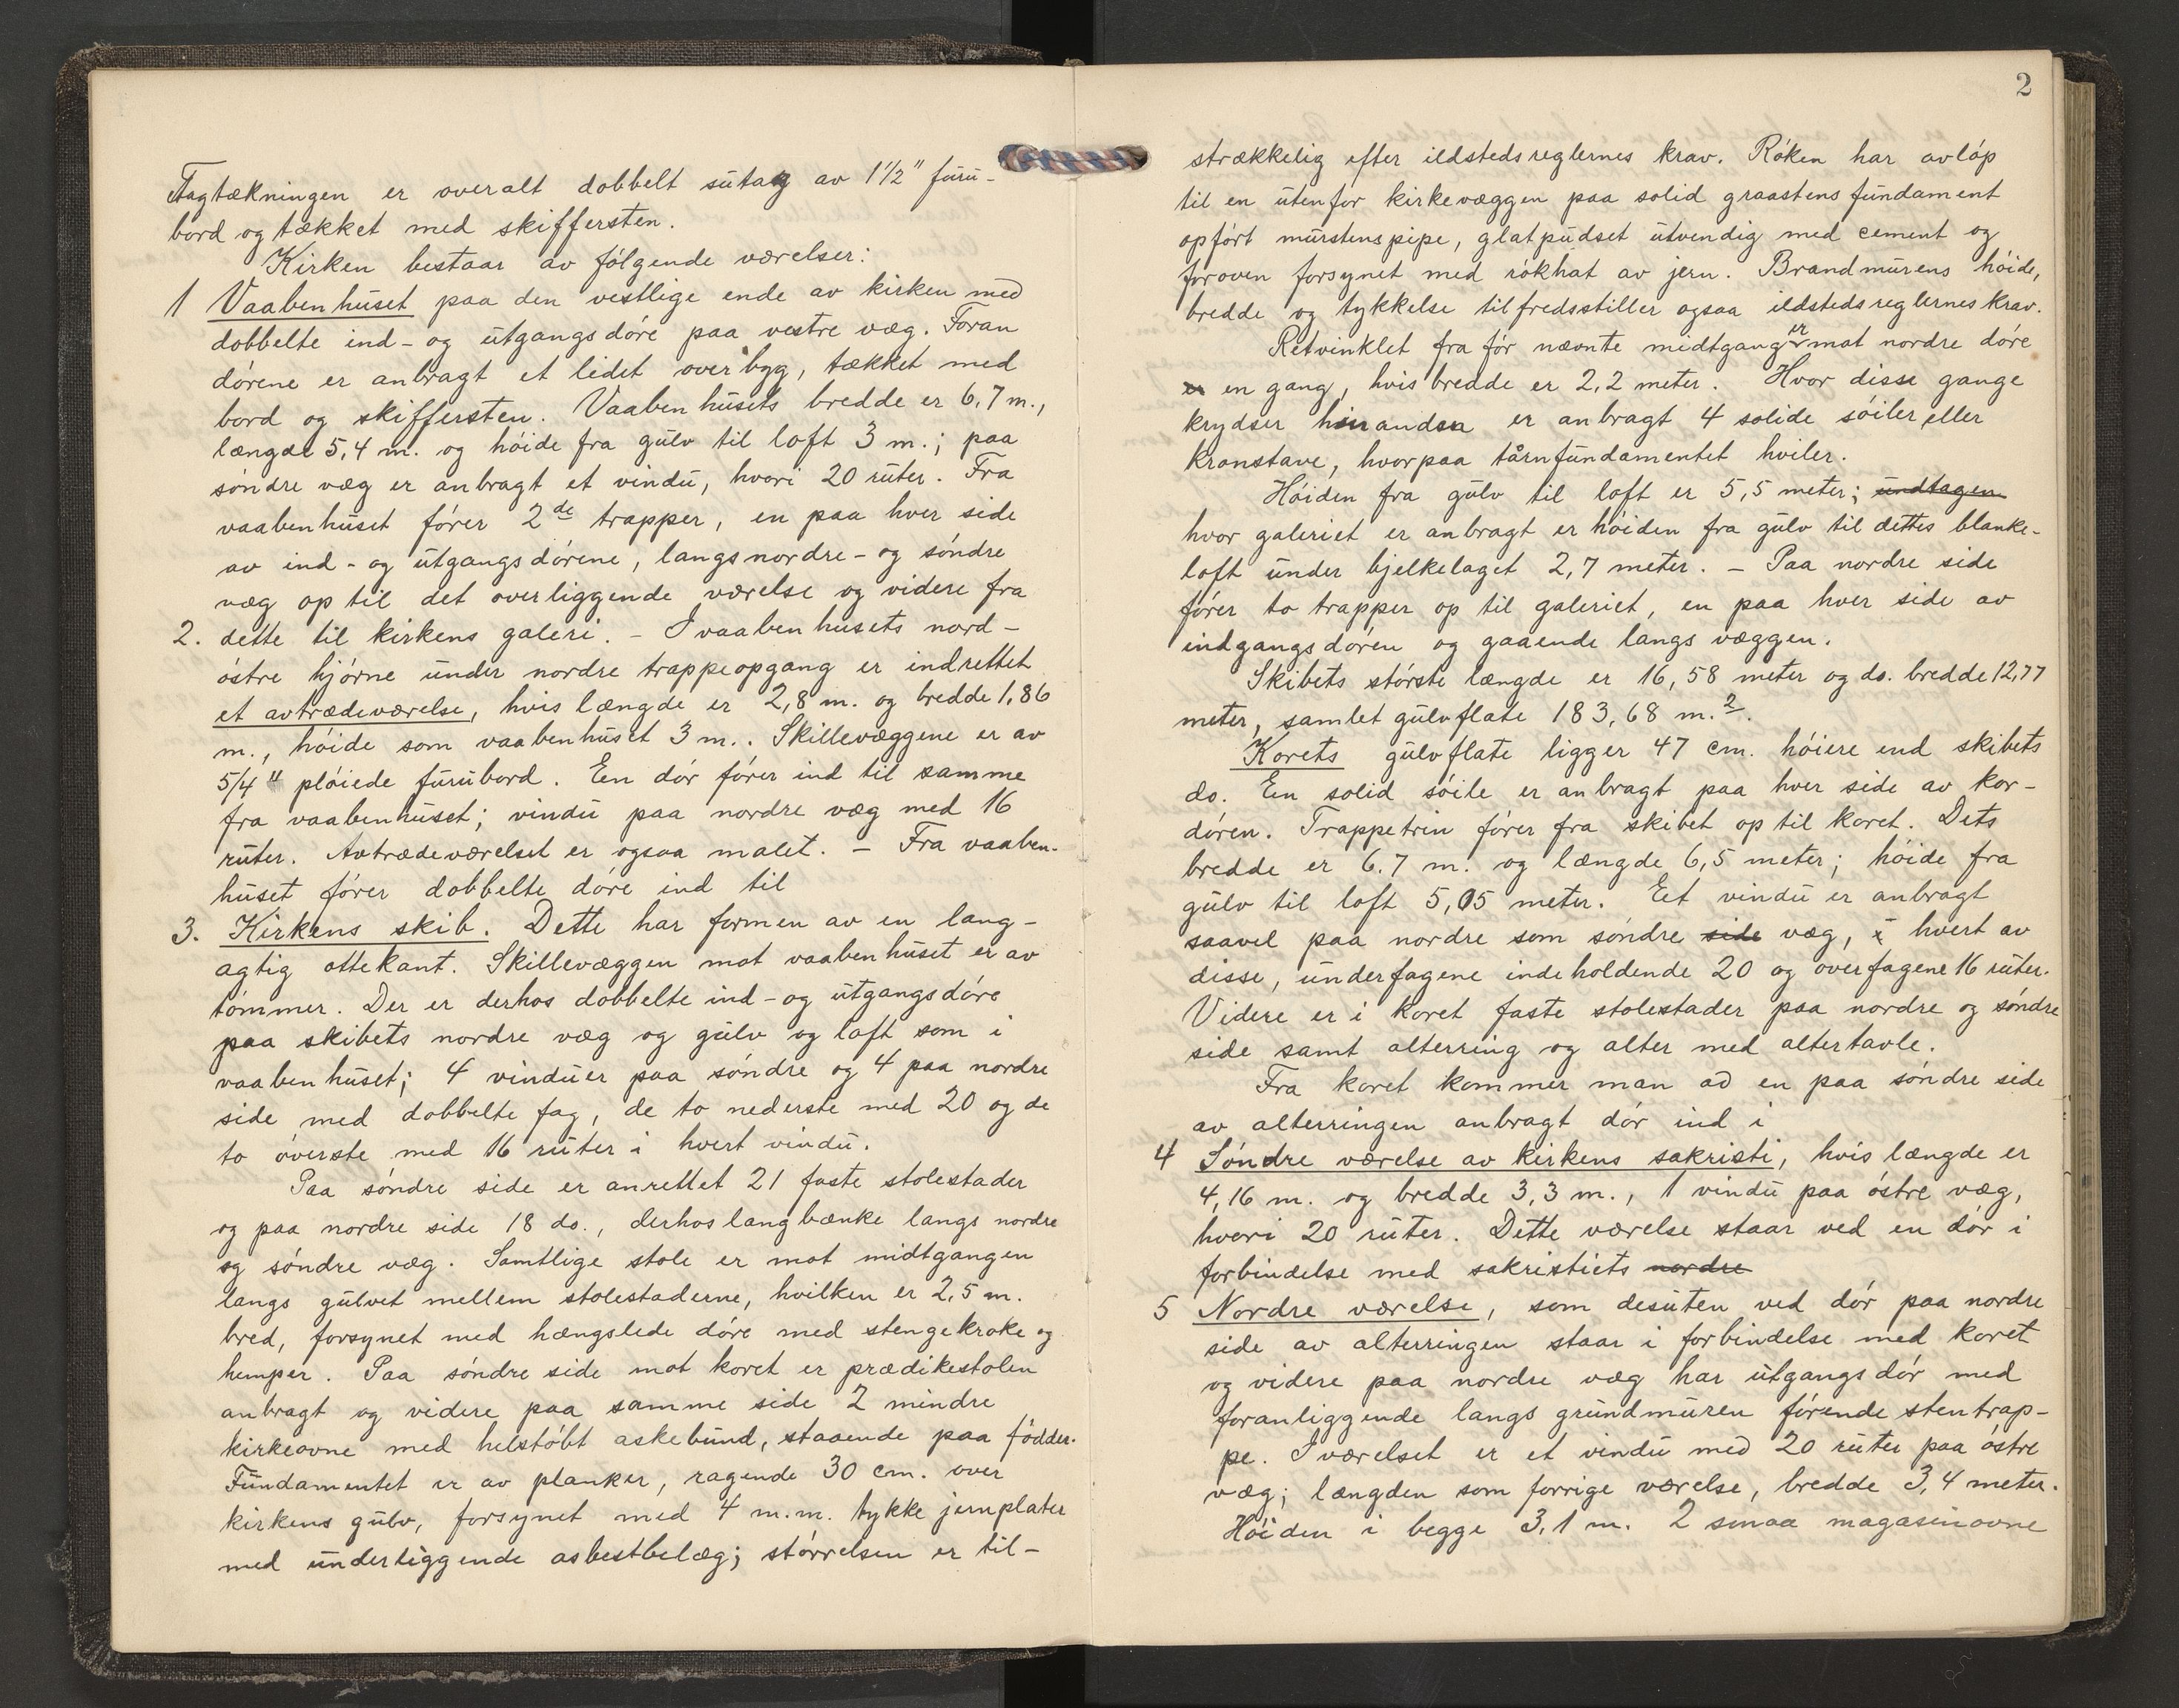 Tagtækningen er overalt dobbelt sutag av 1½" furu-
bord og tækket med skiffersten.
Kirken bestaar av følgende værelser:
1 Vaabenhuset paa den vestlige ende av kirken med
dobbelte ind- og utgangsdøre paa vestre væg. Foran
dørene er anbragt et lidet overbyg, tækket med
bord og skiffersten. Vaabenhusets bredde er 6,7 m.,
længde 5,4 m. og høide fra gulv til loft 3 m.; paa
søndre væg er anbragt et vindu, hvori 20 ruter. Fra
vaabenhuset fører 2de trapper, en paa hver side
av ind- og utgangsdørene, langs nordre- og søndre
væg op til det overliggende værelse og videre fra
2. dette til kirkens galeri. - I vaabenhusets nord-
østre hjørne under nordre trappeopgang er indrettet
et avtrædeværelse, hvis længde er 2,8 m. og bredde 1,86
m., høide som vaabenhuset 3 m.. Skillevæggene er av
5/4" pløiede furubord. Een dør fører ind til samme
fra vaabenhuset; vindu paa nordre væg med 16
ruter. Avtrædeværelset er ogsaa malet. - Fra vaaben-
huset fører dobbelte døre ind til
3. Kirkens skib. Dette har formen av en lang-
agtig ottekant. Skillevæggen mot vaabenhuset er av
tømmer. Der er derhos dobbelte ind- og utgangsdøre
paa skibets nordre væg og gulv og loft som i
vaabenhuset; 4 vinduer paa søndre og 4 paa nordre
side med dobbelte fag, de to nederste med 20 og de
to øverste med 16 ruter i hvert vindu.
Paa søndre side er anrettet 21 faste stolestader
og paa nordre side 18 do., derhos langbænke langs nordre
og søndre væg. Samtlige stole er mot midtgangen
langs gulvet mellem stolestaderne, hvilken er 2,5 m.
bred, forsynet med hængslede døre med stengekroke og
hemper. Paa søndre side mot koret er prædikestolen
anbragt og videre paa samme side 2 mindre
kirkeovne med helstøbt askebund, staaende paa fødder.
Fundamentet er av planker, ragende 30 cm. over
kirkens gulv, forsynet med 4 m.m. tykke jernplater
med underliggende asbestbelæg; størrelsen er til-
2
strækkelig efter ildstedsreglernes krav. Røken har avløp
til en utenfor kirkevæggen paa solid graastens fundament
opført murstenspipe, glatpudset utvendig med cement og
foroven forsynet med røkhat av jern. Brandmurens høide,
bredde og tykkelse tilfredsstiller ogsaa ildstedsreglernes krav.
Retvinklet fra før nævnte midtgang er mot nordre døre
er en gang, hvis bredde er 2,2 meter. Hvor disse gange
krydser hinanden er anbragt 4 solide søiler eller
kronstave, hvorpaa tårnfundamentet hviler.
Høiden fra gulv til loft er 5,5 meter; undtagen
hvor galeriet er anbragt er høiden fra gulv til dettes blanke-
loft under bjelkelaget 2,7 meter. - Paa nordre side
fører to trapper op til galeriet, en paa hver side av
indgangsdøren og gaaende langs væggen.
Skibets største længde er 16,58 meter og do. bredde 12,77
meter, samlet gulvflate 183,68 m.2.
Korets gulvflate ligger 47 cm. høiere end skibets
do. En solid søile er anbragt paa hver side av kor-
døren. Trappetrin fører fra skibet op til koret. Dets
bredde er 6.7 m. og længde 6,5 meter; høide fra
gulv til loft 5,05 meter. Eet vindu er anbragt
saavel paa nordre som søndre side væg, i hvert av
disse, underfagene indeholdende 20 og overfagene 16 ruter.
Videre er i koret faste stolestader paa nordre og søndre
side samt alterring og alter med altertavle.
Fra koret kommer man ad en paa søndre side
av alterringen anbragt dør ind i
4 Søndre værelse av kirkens sakristi, hvis længde er
4,16 m. og bredde 3,3 m., 1 vindu paa østre væg,
hvori 20 ruter. Dette værelse staar ved en dør i
forbindelse med sakristiets nordre
5 Nordre værelse, som desuten ved dør paa nordre
side av alterringen staar i forbindelse med koret
og videre paa nordre væg har utgangsdør med
foranliggende langs grundmuren førende stentrap-
pe. I værelset er et vindu med 20 ruter paa østre
væg; længden som forrige værelse, bredde 3,4 meter.
Høiden i begge 3,1 m. 2 smaa magasinovne